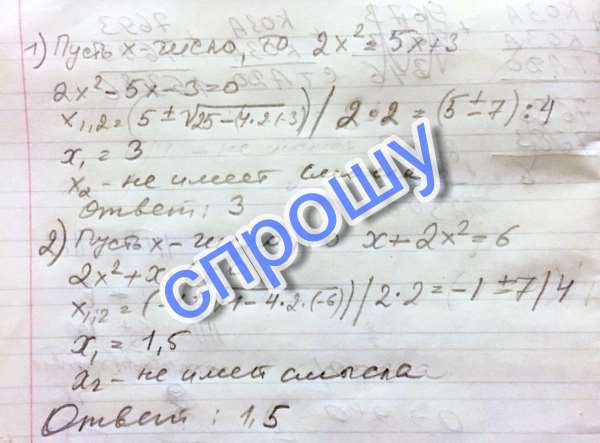 1) Пусть x - число, то 2x² = 5x+3
2x² - 5x - 3 = 0
x₁,₂ = (5 ± √25 - (4·2·(-3)) / 2·2 = (5 ± 7) : 4
x₁ = 3
x₂ - не имеет
Ответ: 3
2) Пусть x - x + 2x² = 6
2x² + x
x₁;₂ = 1 - 4·2·(-6)) / 2·2 = -1 ± 7 / 4
x₁ = 1,5
x₂ - не имеет смысла
Ответ: 1,5
спрошу